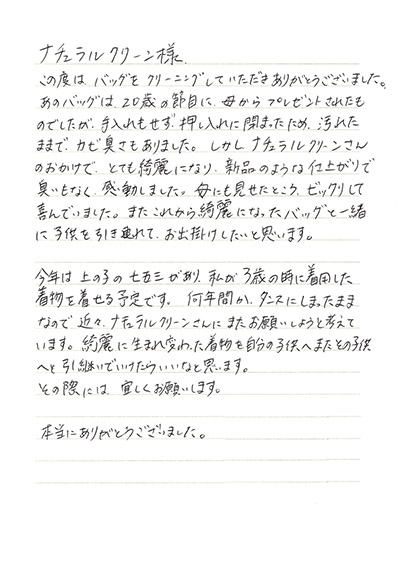 ナチュラルクリーン様
この度は、バッグをクリーニングしていただきありがとうございました。
あのバッグは、20歳の節目に、母からプレゼントされたも
のでしたが、手入れもせず、押し入れに閉まったため、汚れた
ままで、カビ臭さもありました。しかし、ナチュラルクリーンさん
のおかげで、とても綺麗になり、新品のような仕上がりで
臭いもなく、感動しました。母にも見せたところ、ビックリして
喜んでいました。またこれから綺麗になったバッグと一緒
に子供を引き連れて、お出掛けしたいと思います。
今年は上の子の七五三があり、私が3歳の時に着用した
着物を着せる予定です。何年間か、タンスにしまったまま
なので近々、ナチュラルクリーンさんにまたお願いしようと考えて
います。綺麗に生まれ変わった着物を自分の子供へまたその子供
へと引き継いでいけたらいいなと思います。
その際には、宜しくお願いします。
本当にありがとうございました。